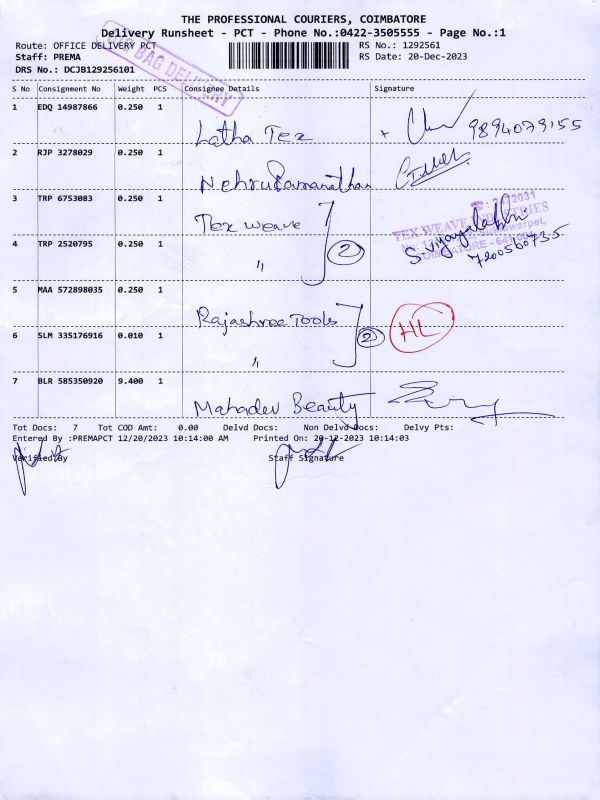 THE PROFESSIONAL COURIERS, COIMBATORE
Delivery Runsheet - PCT - Phone No.:0422-3505555 - Page No.:1
Route: OFFICE DELIVERY PCT
RS No.: 1292561
Staff: PREMA
RS Date: 20-Dec-2023
DRS No.: DCJB129256101
BIG BAG DELIVERY
S No Consignment No Weight PCS Consignee Details Signature
1 EDQ 14987866 0.250 1
Latha Tex 9894079155
2 RJP 3278029 0.250 1
Nehru Ramanathan
3 TRP 6753083 0.250 1
Tex weave
TEX WEAVE
4 TRP 2520795 0.250 1
" 2 S. Vijayalakshmi
7200560735
5 MAA 572898035 0.250 1
Rajashree Tools
6 SLM 335176916 0.010 1
" 2 HL
7 BLR 585350920 9.400 1
Mahadev Beauty
Tot Docs: 7 Tot COD Amt: 0.00 Delvd Docs: Non Delvd Docs: Delvy Pts:
Entered By :PREMAPCT 12/20/2023 10:14:00 AM Printed On: 20-12-2023 10:14:03
Verified By Staff Signature